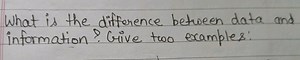 What is the difference between data and
information? Give two examples: